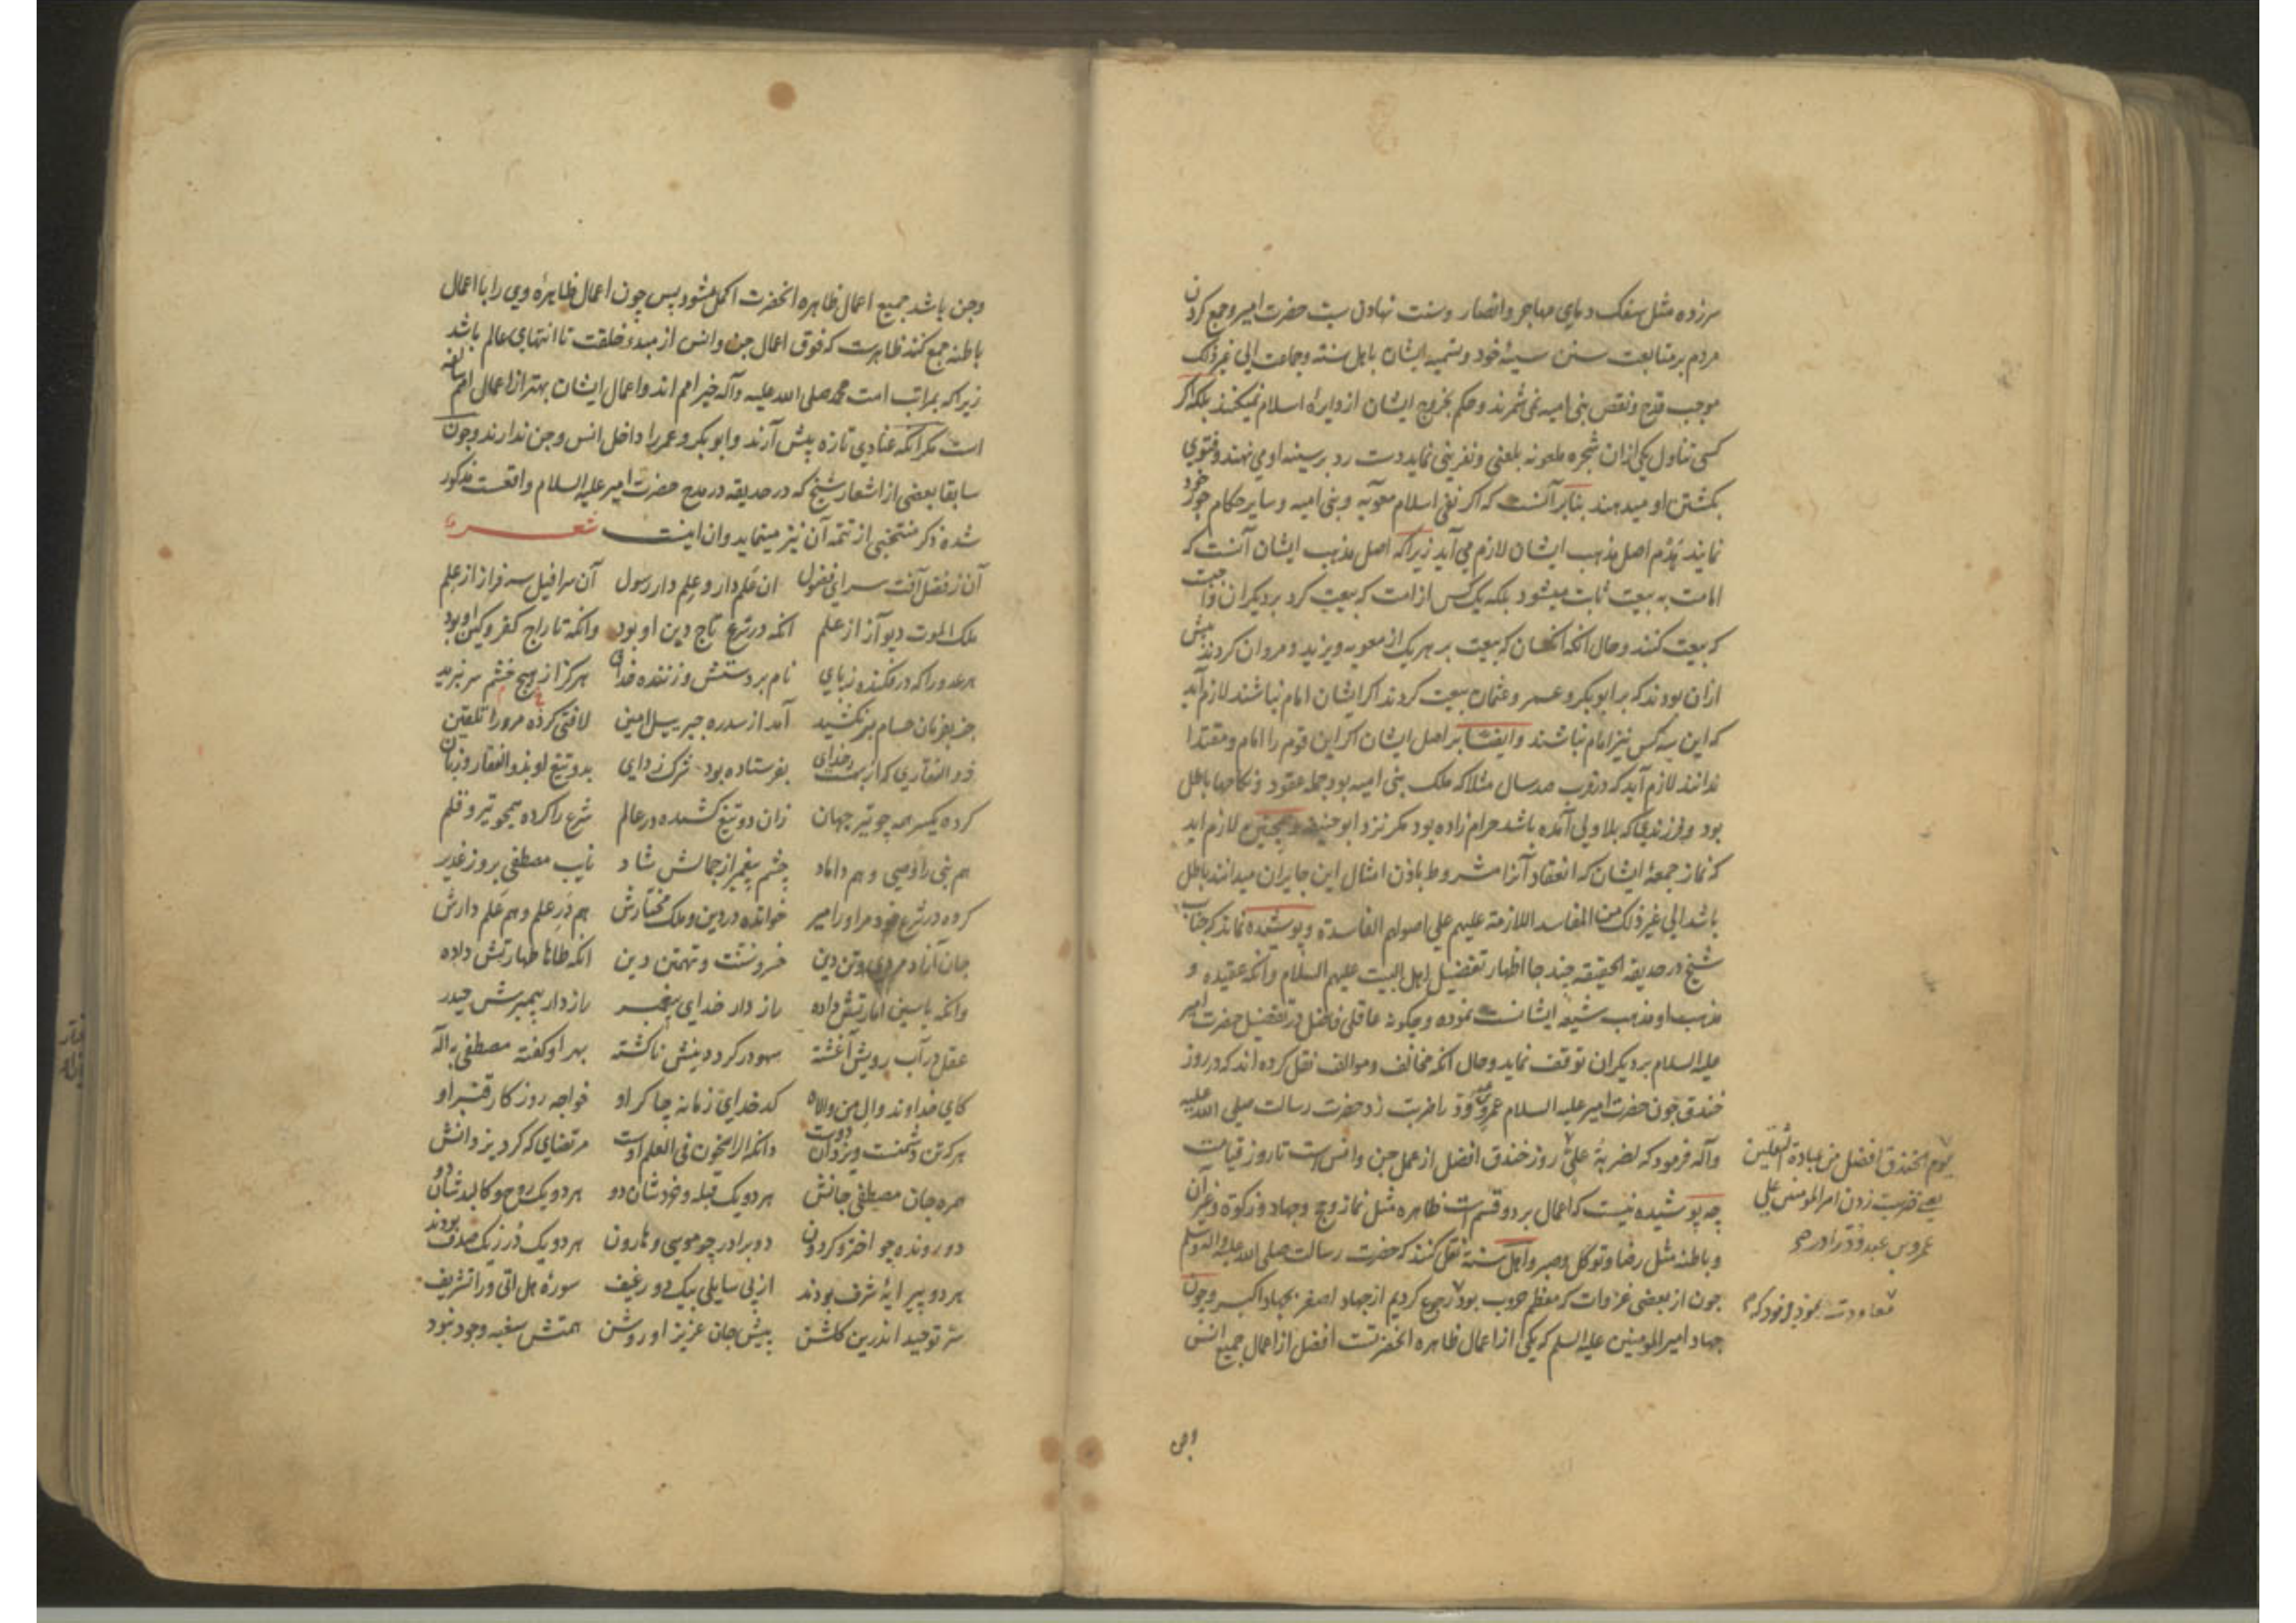 سرزده مثل سفک دمای مهاجر و انصار و سنت نهادن سب حضرت امیر و جمع کردن
مردم بر متابعت سنن سیئه خود و تسمیه ایشان باهل سنة و جماعت الی غیر ذلک
موجب قدح و نقص بنی امیه نمی شمرند و حکم بخروج ایشان از دایره اسلام نمیکنند بلکه اگر
کسی تناول یکی ازان شجره ملعونه بلعنی و نفرینی نماید دست رد بر سینه او می نهند و فتوی
بکشتن او میدهند بنابر آنست که اگر نفی اسلام معویه و بنی امیه و سایر حکام جور خود
نمایند هدم اصل مذهب ایشان لازم می آید زیرا که اصل مذهب ایشان آنست که
امامت به بیعت ثابت میشود بلکه یک کس از امت که بیعت کرد بر دیگران واجبست
که بیعت کنند و حال آنکه آنکسان که بیعت بر هر یک از معویه و یزید و مروان کردند بیش
ازان بودند که بر ابو بکر و عمر و عثمان بیعت کردند اگر ایشان امام نباشند لازم آید
که این سه کس نیز امام نباشند و ایضا بر اصل ایشان اگر این قوم را امام و مقتدا
ندانند لازم آید که در قرب صد سال مثلا که ملک بنی امیه بود جمله عقود و نکاحها باطل
بود و فرزندی که بلا ولی آمده باشد حرام زاده بود مگر نزد ابو حنیفه و همچنین لازم اید
که نماز جمعه ایشان که انعقاد آنرا مشروط باذن امثال این جایران میدانند باطل
باشد الی غیر ذلک من المفاسد اللازمة علیهم علی اصولهم الفاسدة و پوشیده نماند که جناب
شیخ در حدیقة الحقیقه چند جا اظهار تفضیل اهل البیت علیهم السلام و آنکه عقیده و
مذهب او مذهب شیعه ایشانست نموده و چگونه عاقلی فاضل در تفضیل حضرت امیر
علیه السلام بر دیگران توقف نماید و حال آنکه مخالف و موالف نقل کرده اند که در روز
خندق چون حضرت امیر علیه السلام عمرو بن عبدود را ضربت زد حضرت رسالت صلی الله علیه
وآله فرمود که لضربة علی روز خندق افضل از عمل جن و انس است تا روز قیامت
چه پوشیده نیست که اعمال بر دو قسم است ظاهره مثل نماز و حج و جهاد و زکوة و غیر آن
و باطنه مثل رضا و توکل و صبر و اهل سنة نقل کنند که حضرت رسالت صلی الله علیه وآله وسلم
چون از بعضی غزوات که معظم حروب بود رجوع کردیم از جهاد اصغر بجهاد اکبر و چون
جهاد امیر المومنین علیه السلم که یکی از اعمال ظاهره آنحضرتست افضل از اعمال جمیع انس
یوم الخندق افضل من عبادة الثقلین
یعنی ضربت زدن امیر المومنین علی
عمرو بن عبدود را در
معاودت نمود فرمود که
وجن باشد جمیع اعمال ظاهره آنحضرت اکمل میشود پس چون اعمال ظاهره وی را با اعمال
باطنه جمع کنند ظاهرست که فوق اعمال جن و انس از مبدء خلقت تا انتهای عالم باشد
زیرا که بمراتب امت محمد صلی الله علیه وآله خیر امم اند و اعمال ایشان بهتر از اعمال امم سالفه
است مگر آنکه عنادی تازه پیش آرند و ابو بکر و عمر را داخل انس و جن ندارند و چون
سابقا بعضی از اشعار شیخ که در حدیقه در مدح حضرت امیر علیه السلام واقعست مذکور
شده ذکر منتخبی از تتمه آن نیز مینماید و ان اینست شعر
آن ز فضل آفت سرای فضول ان علم دار و علم دار رسول آن سرافیل سرفراز از علم
ملک الموت دیو آز از علم آنکه در شرع تاج دین او بود وانکه تاراج کفر و کین او بود
هر عدو را که درفکنده ز پای نام بر دستش و زننده خدای هرگز از هیچ خشم سر نبرید
جز بفرمان حسام برنکشید آمد از سدره جبرییل امین لافتی کرده مرورا تلقین
ذو الفقاری که از بهشت خدای بفرستاده بود شرک زدای بدو تیغ او بذو الفقار و زبان
کرده یکسر همه چو تیر جهان زان دو تیغ کشیده در عالم شرع را کرده همچو تیر و قلم
هم نبی را وصی و هم داماد چشم پیغمبر از جمالش شاد نایب مصطفی بروز غدیر
کرده در شرع خود مر اورا میر خوانده در دین و ملک مختارش هم در علم و هم علم دارش
جان آزادمردی و تن دین خسرو سنت و تهمتن دین انکه طاها طهارتش داده
وانکه یاسین امارتش داده راز دار خدای پیغمبر راز دار پیمبرش حیدر
عقل در آب رویش آغشته سهو در گرد دینش ناگشته بهر او گفته مصطفی بآله
کای خداوند وال من والاه کدخدای زمانه چاکر او خواجه روز کار قنبر او
هر که تن دشمنست و یزدان دوست دانکه الراسخون فی العلم اوست مرتضایی که کرد یزدانش
همره جان مصطفی جانش هر دو یک قبله و خردشان دو هر دو یک روح و کالبدشان دو
دو رونده چو اختر و گردون دو برادر چو موسی و هارون هر دو یک در ز یک صدف بودند
هر دو پیرایه شرف بودند از پی سایلی بیک دو رغیف سوره هل اتی ورا تشریف
سر توحید اندرین گلشن پیش جان عزیز او روشن همتش سغبه وجود نبود